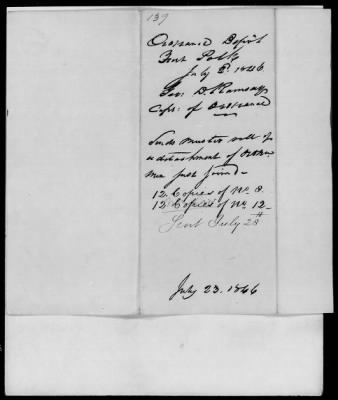 137
Ordnance Depot
Fort Polk
July 8. 1846.
Geo. D. Ramsay
Capt. of Ordnance
Sends muster roll of
a detachment of
men just joined -
12. Copies of No. 8.
12 Copies of No. 12 -
Sent July 28th
July 23. 1846